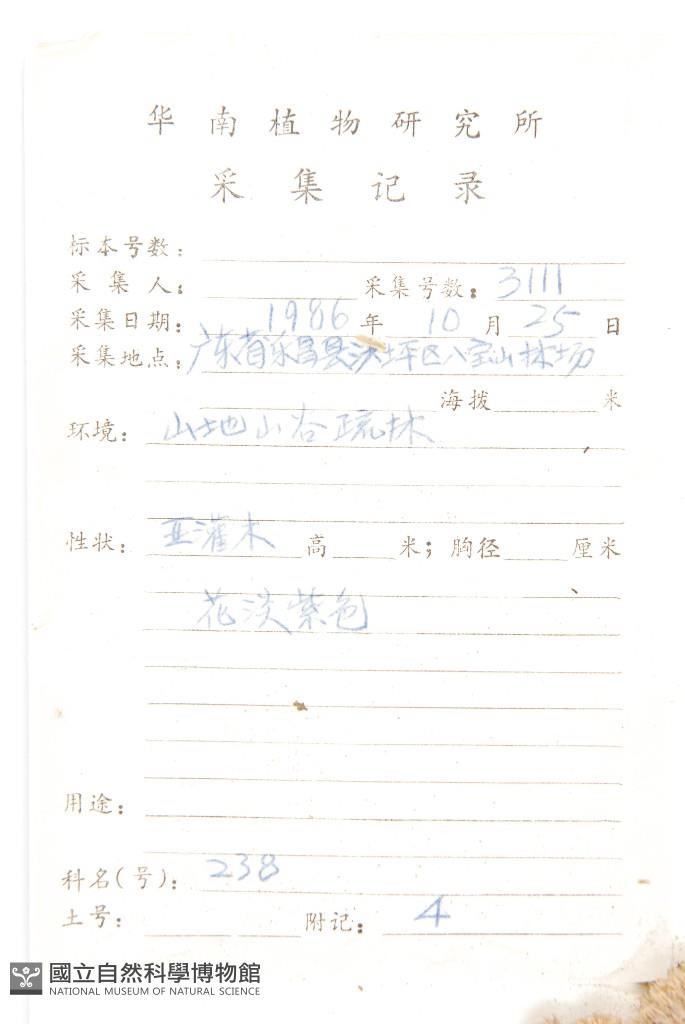 华南植物研究所
采集记录
标本号数：
采集人： 采集号数：3111
采集日期： 1986 年 10 月 25 日
采集地点：广东省乐昌县沙坪区八宝山林场
海拨 米
环境： 山地山谷疏林
性状： 亚灌木 高 米；胸径 厘米
花淡紫色
用途：
科名(号)： 238
土号： 附记： 4
國立自然科學博物館
NATIONAL MUSEUM OF NATURAL SCIENCE